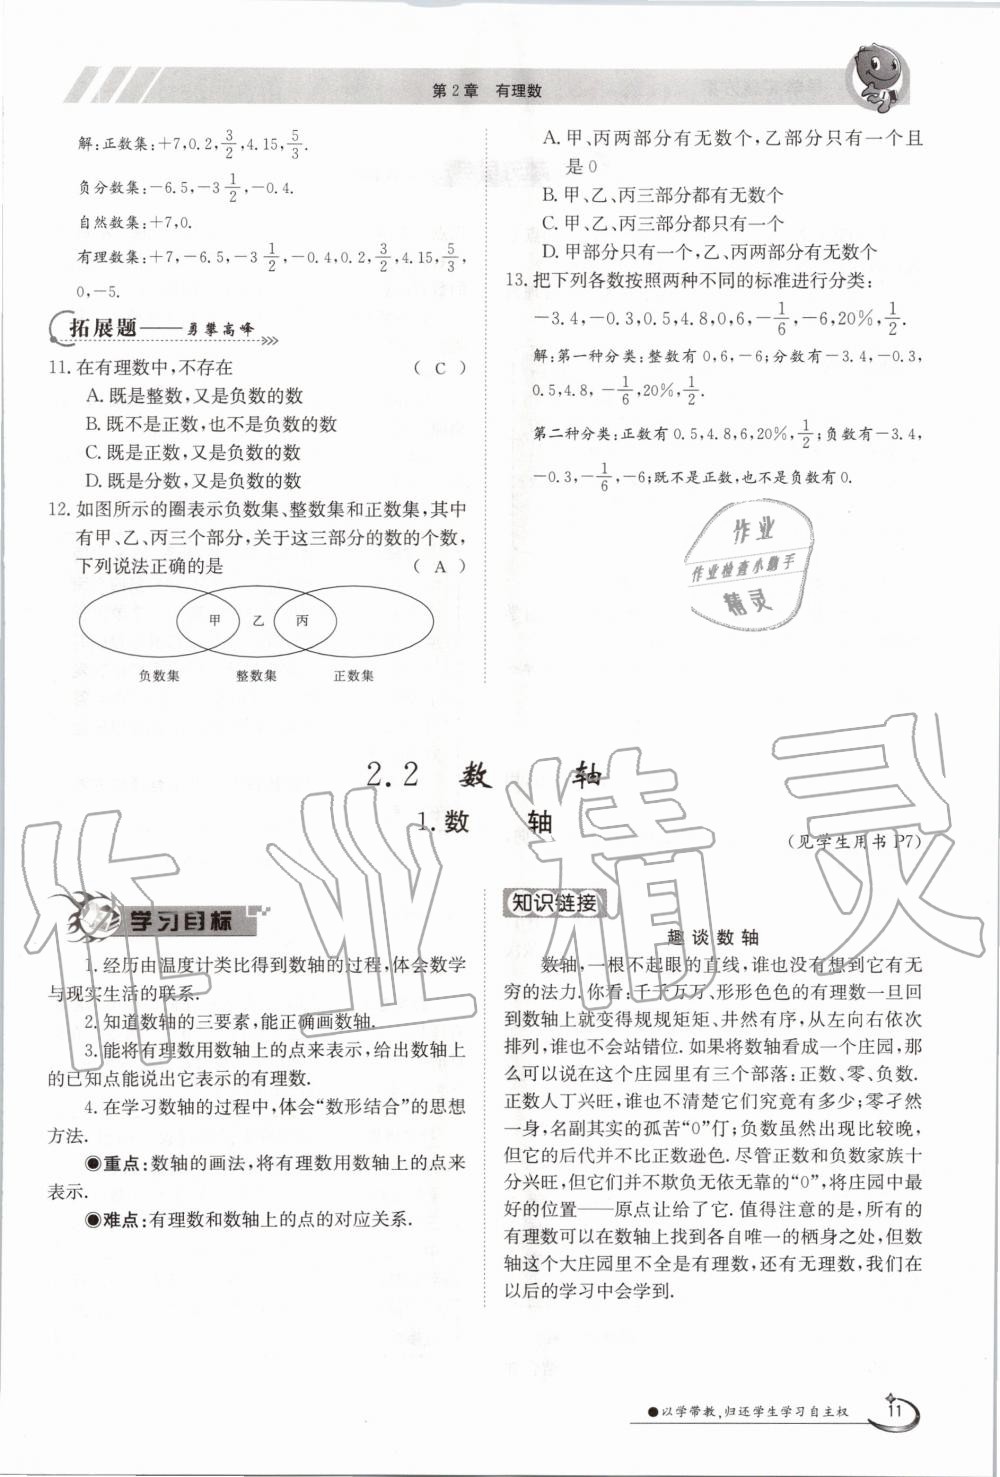 第2章 有理数
解:正数集:+7,0.2,3/2,4.15,5/3.
负分数集:-6.5,-3 1/2,-0.4.
自然数集:+7,0.
有理数集:+7,-6.5,-3 1/2,-0.4,0.2,3/2,4.15,5/3,
0,-5.
拓展题——勇攀高峰
11. 在有理数中,不存在 ( C )
A. 既是整数,又是负数的数
B. 既不是正数,也不是负数的数
C. 既是正数,又是负数的数
D. 既是分数,又是负数的数
12. 如图所示的圈表示负数集、整数集和正数集,其中
有甲、乙、丙三个部分,关于这三部分的数的个数,
下列说法正确的是 ( A )
甲 乙 丙
负数集 整数集 正数集
A. 甲、丙两部分有无数个,乙部分只有一个且
是0
B. 甲、乙、丙三部分都有无数个
C. 甲、乙、丙三部分都只有一个
D. 甲部分只有一个,乙、丙两部分有无数个
13. 把下列各数按照两种不同的标准进行分类:
-3.4,-0.3,0.5,4.8,0,6,-1/6,-6,20%,1/2.
解:第一种分类:整数有0,6,-6;分数有-3.4,-0.3,
0.5,4.8,-1/6,20%,1/2.
第二种分类:正数有0.5,4.8,6,20%,1/2;负数有-3.4,
-0.3,-1/6,-6;既不是正数,也不是负数有0.
作业
作业检查小助手
精灵
2.2 数 轴
1. 数 轴
(见学生用书 P7)
作业精灵
学习目标
1. 经历由温度计类比得到数轴的过程,体会数学
与现实生活的联系.
2. 知道数轴的三要素,能正确画数轴.
3. 能将有理数用数轴上的点来表示,给出数轴上
的已知点能说出它表示的有理数.
4. 在学习数轴的过程中,体会“数形结合”的思想
方法.
◉重点:数轴的画法,将有理数用数轴上的点来
表示.
◉难点:有理数和数轴上的点的对应关系.
知识链接
趣谈数轴
数轴,一根不起眼的直线,谁也没有想到它有无
穷的法力. 你看:千千万万、形形色色的有理数一旦回
到数轴上就变得规规矩矩、井然有序,从左向右依次
排列,谁也不会站错位. 如果将数轴看成一个庄园,那
么可以说在这个庄园里有三个部落:正数、零、负数.
正数人丁兴旺,谁也不清楚它们究竟有多少;零孑然
一身,名副其实的孤苦“0”仃;负数虽然出现比较晚,
但它的后代并不比正数逊色. 尽管正数和负数家族十
分兴旺,但它们并不欺负无依无靠的“0”,将庄园中最
好的位置——原点让给了它. 值得注意的是,所有的
有理数可以在数轴上找到各自唯一的栖身之处,但数
轴这个大庄园里不全是有理数,还有无理数,我们在
以后的学习中会学到.
●以学带教,归还学生学习自主权
11